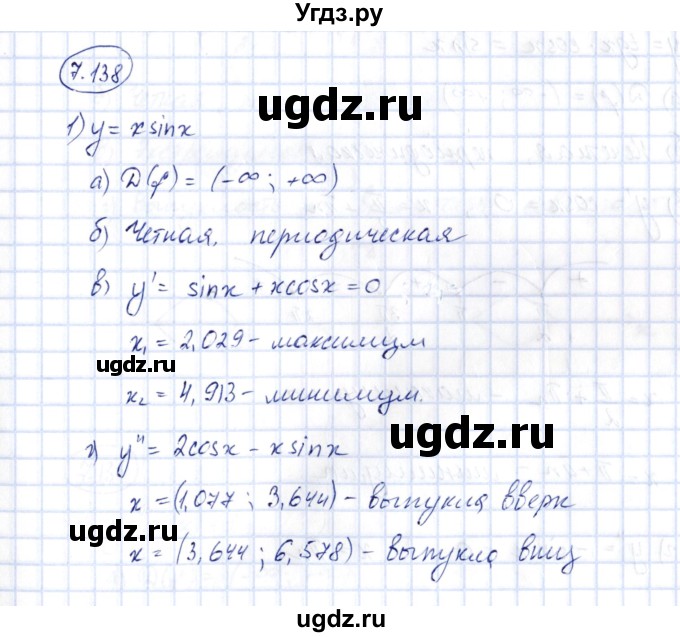 Угдз.ру
7.138
ugdz.ru
1) y = x sinx
а) D(f) = (-∞ ; +∞)
б) Четная, периодическая
в) y' = sinx + xcosx = 0
x₁ = 2,029 - максимум
ugdz.ru
ugdz.ru
x₂ = 4,913 - минимум.
г) y'' = 2cosx - x sinx
ugdz.ru
x = (1,077 ; 3,644) - выпукла вверх
ugdz.ru
x = (3,644 ; 6,578) - выпукла вниз
ugdz.ru
ugdz.ru